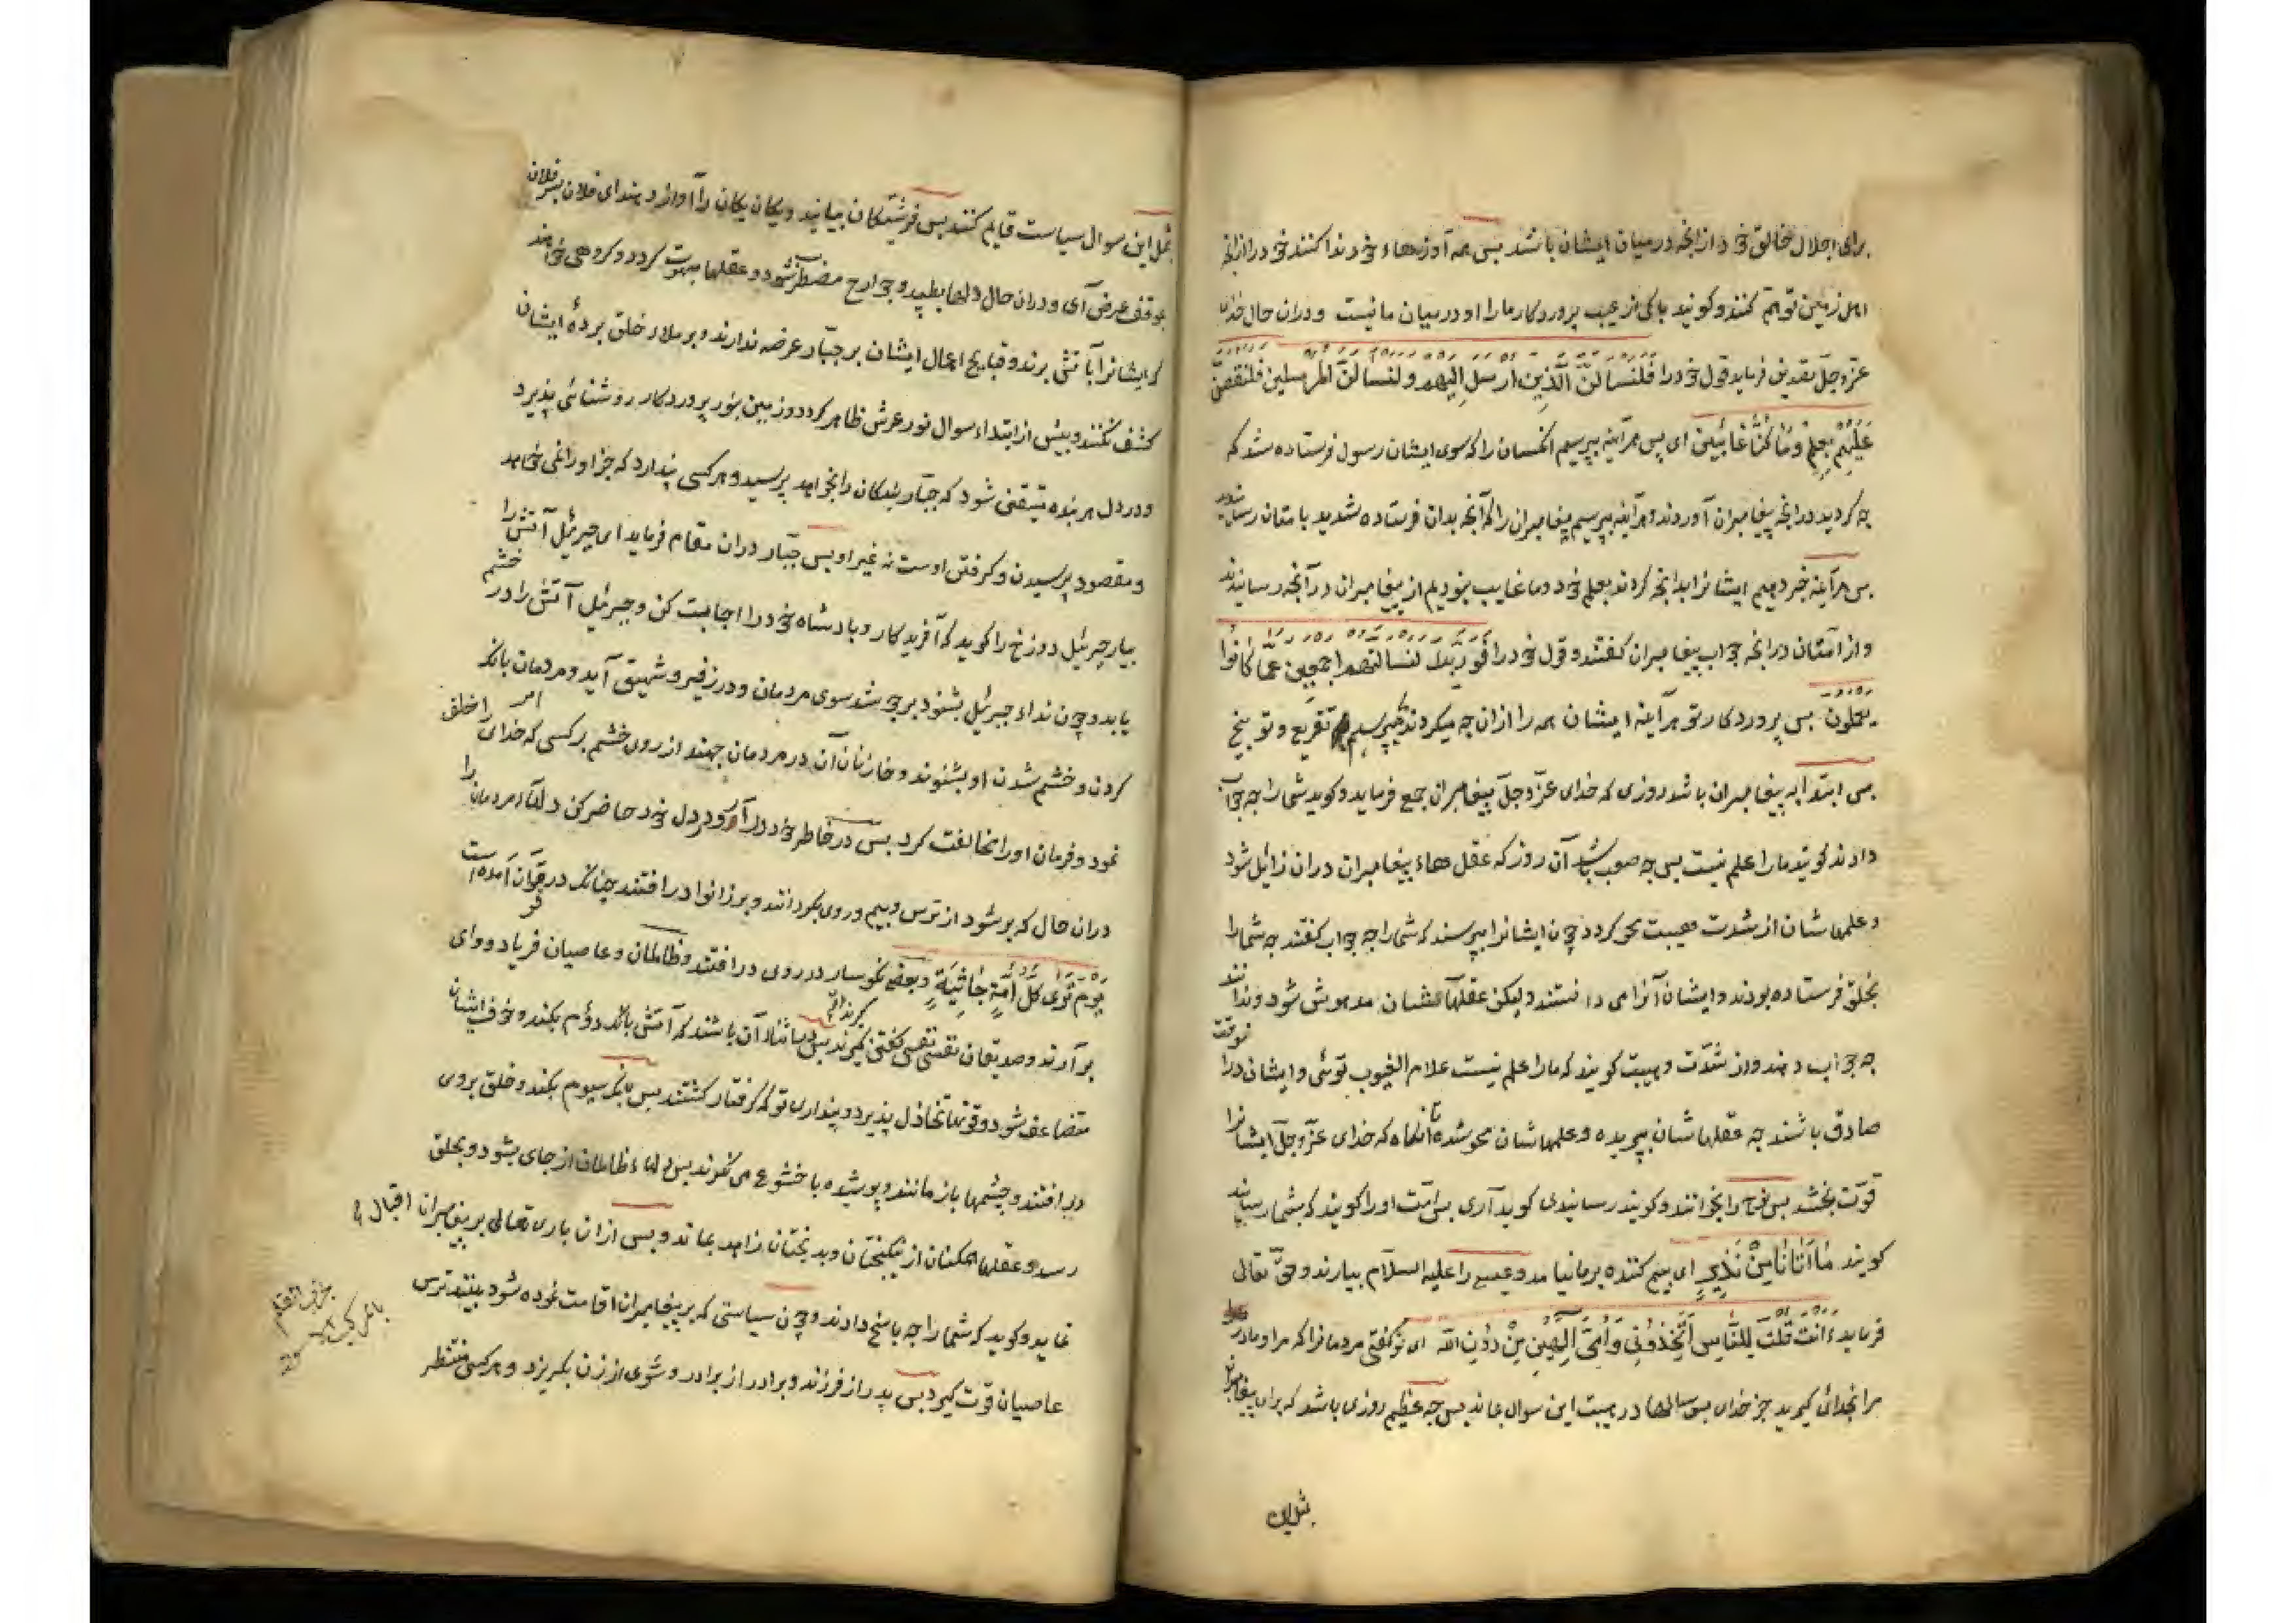 برای اجلال خالق خود از انچه در میان ایشان باشد بس همه آوازهاء خود ندا کنند خود را از انچه
اهل زمین توهم کنند و کویند باکی از عیب پروردکار ما را او در میان ما نیست و دران حال خدای
عزوجل تصدیق فرماید قول خود را فَلَنَسْأَلَنَّ الَّذِینَ اُرْسِلَ اِلَیْهِمْ وَلَنَسْأَلَنَّ الْمُرْسَلِینَ فَلَنَقُصَّنَّ
عَلَیْهِمْ بِعِلْمٍ وَمَا کُنَّا غَائِبِینَ ای بس هر آینه بپرسیم انکسان را که سوی ایشان رسول فرستاده شد که
چه کردید در انچه پیغامبران آوردند و هر آینه بپرسیم پیغامبران را که آنچه بدان فرستاده شدید بامتان رسانیدید
بس هر آینه خبر دهیم ایشانرا بدانچه کردند بعلم خود و ما غایب نبودیم از پیغامبران در آنچه رسانیدند
و از امتان در انچه جواب پیغامبران کفتند و قول خود را فَوَرَبِّکَ لَنَسْأَلَنَّهُمْ اَجْمَعِینَ عَمَّا کَانُوا
یعملون بس پروردکار تو هر آینه ایشان همه را ازان چه میکردند بپرسیم تقریع و توبیخ
بس ابتدا به پیغامبران باشد روزی که خدای عزّوجلّ پیغامبران جمع فرماید و کوید شما را چه جواب
دادند کویند ما را علم نیست بس چه صوب باشد آن روز که عقل هاء پیغامبران دران زائل شود
و علمهاشان از شدت هیبت محو کردد چون ایشانرا بپرسند که شما را چه جواب کفتند چه شما را
بخلق فرستاده بودند و ایشان آنرا می دانستند و لیکن عقلهاشان مدهوش شود و ندانند
چه جواب دهند و از شدّت و هیبت کویند که ما را علم نیست علام الغیوب توئی و ایشان درانوقت
صادق باشند چه عقلهاشان بپریده و علمهاشان محو شده تا انکاه که خدای عزّوجلّ ایشانرا
قوّت بخشد بس نوح را بخوانند و کویند رسانیدی کوید آری بس امّت او را کویند که بشما رسانید
کویند مَا اَتَانَا مِنْ نَذِیرٍ ای بیم کننده بر ما نیامد و عیسی را علیه السلام بیارند و حقّ تعالی
فرماید ءَاَنْتَ قُلْتَ لِلنَّاسِ اتَّخِذُونِی وَاُمِّیَ اِلٰهَیْنِ مِنْ دُونِ اللّه ای تو کفتی مردمانرا که مرا و مادر
مرا بخدائی کیرید جز خدای بس سالها در هیبت این سوال بماند بس چه عظیم روزی باشد که برای پیغامبران
بمثل این
بمثل این سوال سیاست قایم کنند بس فرشتکان بیایند و یکان یکان را آواز دهند ای فلان بن فلان
بموقف عرض آی و دران حال دلها بطپد و جوارح مضطرب شود و عقلها مبهوت کردد و کروهی خواهند
که ایشانرا بآتش برند و قبایح اعمال ایشان بر جبّار عرضه ندارند و بر ملاء خلق پردهٔ ایشان
کشف نکنند و بیش از ابتداء سوال نور عرش ظاهر کردد و زمین بنور پروردکار روشنائی پذیرد
و در دل هر بنده متیقن شود که جبّار بندکان را بخواهد پرسید و هر کسی پندارد که جز او را نمی خواهد
و مقصود پرسیدن و کرفتن اوست نه غیر او بس جبّار دران مقام فرماید ای جبرئیل آتش را
بیار جبرئیل دوزخ را کوید که آفریدکار و بادشاه خود را اجابت کن و جبرئیل آتش را در خشم
یابد و چون نداء جبرئیل بشنود بر جوشد سوی مردمان و در زفیر و شهیق آید و مردمان بانک
کردن و خشم شدن او بشنوند و خازنان آن در مردمان جهند از روی خشم بر کسی که خدای امر را خلاف
نمود و فرمان او را مخالفت کرد بس در خاطر خود در آر و در دل خود حاضر کن دلهاء مردمان را
دران حال که پر شود از ترس و بیم و روی بکردانند و بر زانوا در افتند چنانک در قرآن آمده است
یَوْمَ تَرَی کُلَّ اُمَّةٍ جَاثِیَةً و بعضی نکوسار در روی در افتند و ظالمان و عاصیان فریاد و وای
بر آرند و صدیقان نفسی نفسی کفتن کیرند بس در اثناء آن باشند که آتش بانک دوّم بکند و خوف ایشان
متضاعف شود و قوتها تخاذل پذیرد و پنداری تو که کرفتار کشتند بس بانک سیوم بکند و خلق بروی
در افتند و چشمها باز مانند و پوشیده با خشوع می نکرند بس دلهاء ظالمان از جای بشود و بحلق
رسد و عقلها همکنان از نیکبختان و بدبختان زاهد بماند و بس ازان باری تعالی بر پیغامبران اقبال
نماید و کوید که شما را چه باسخ دادند و چون سیاستی که بر پیغامبران اقامت نموده شود ببینند ترس
عاصیان قوّت کیرد بس پدر از فرزند و برادر از برادر و شوی از زن بکریزد و هر کسی منتظر